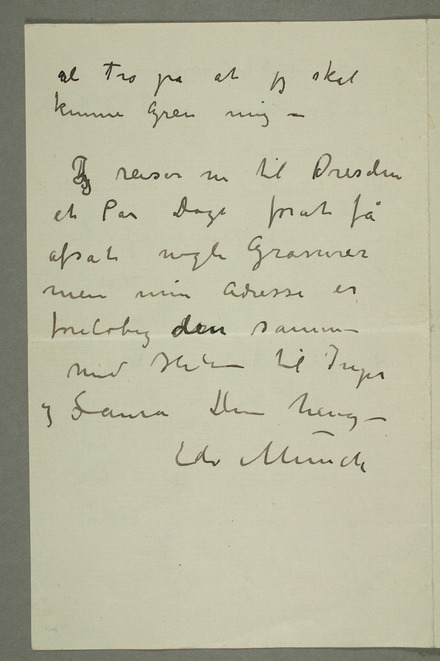 al Tro på at jg skal
kunne greie mig –
Jg reiser nu til Dresden
et Par Dage forat få
afsat nogle Gravurer
men min Adresse er
foreløbig den samme
Med Hilsen til Inger
og Laura Din hengivne
Edv Munch